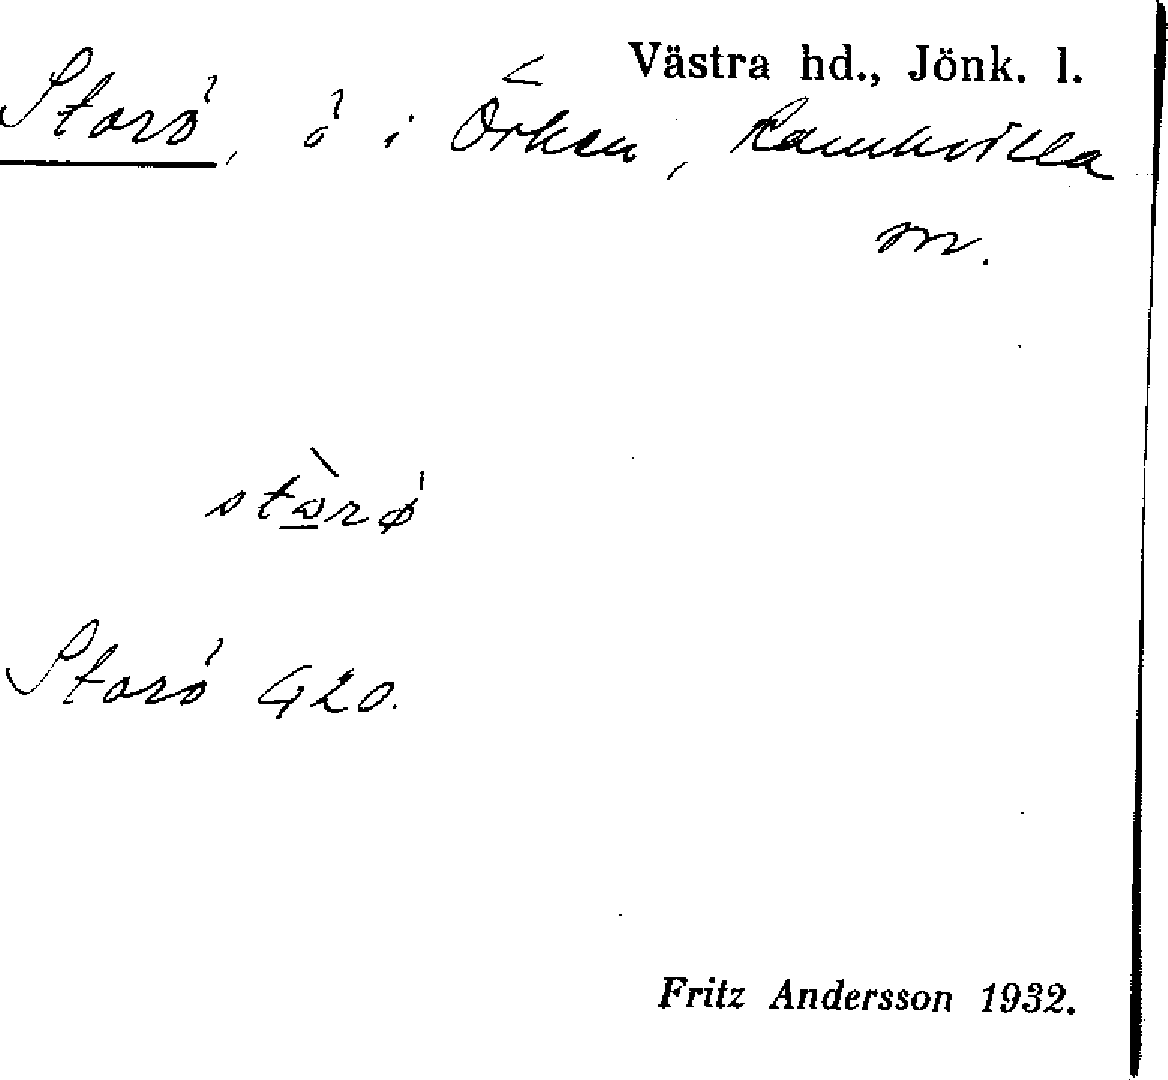 Västra hd., Jönk. l.
Storö, ö i Örken, Ramkvilla
sn.
storø
Storö G20.
Fritz Andersson 1932.